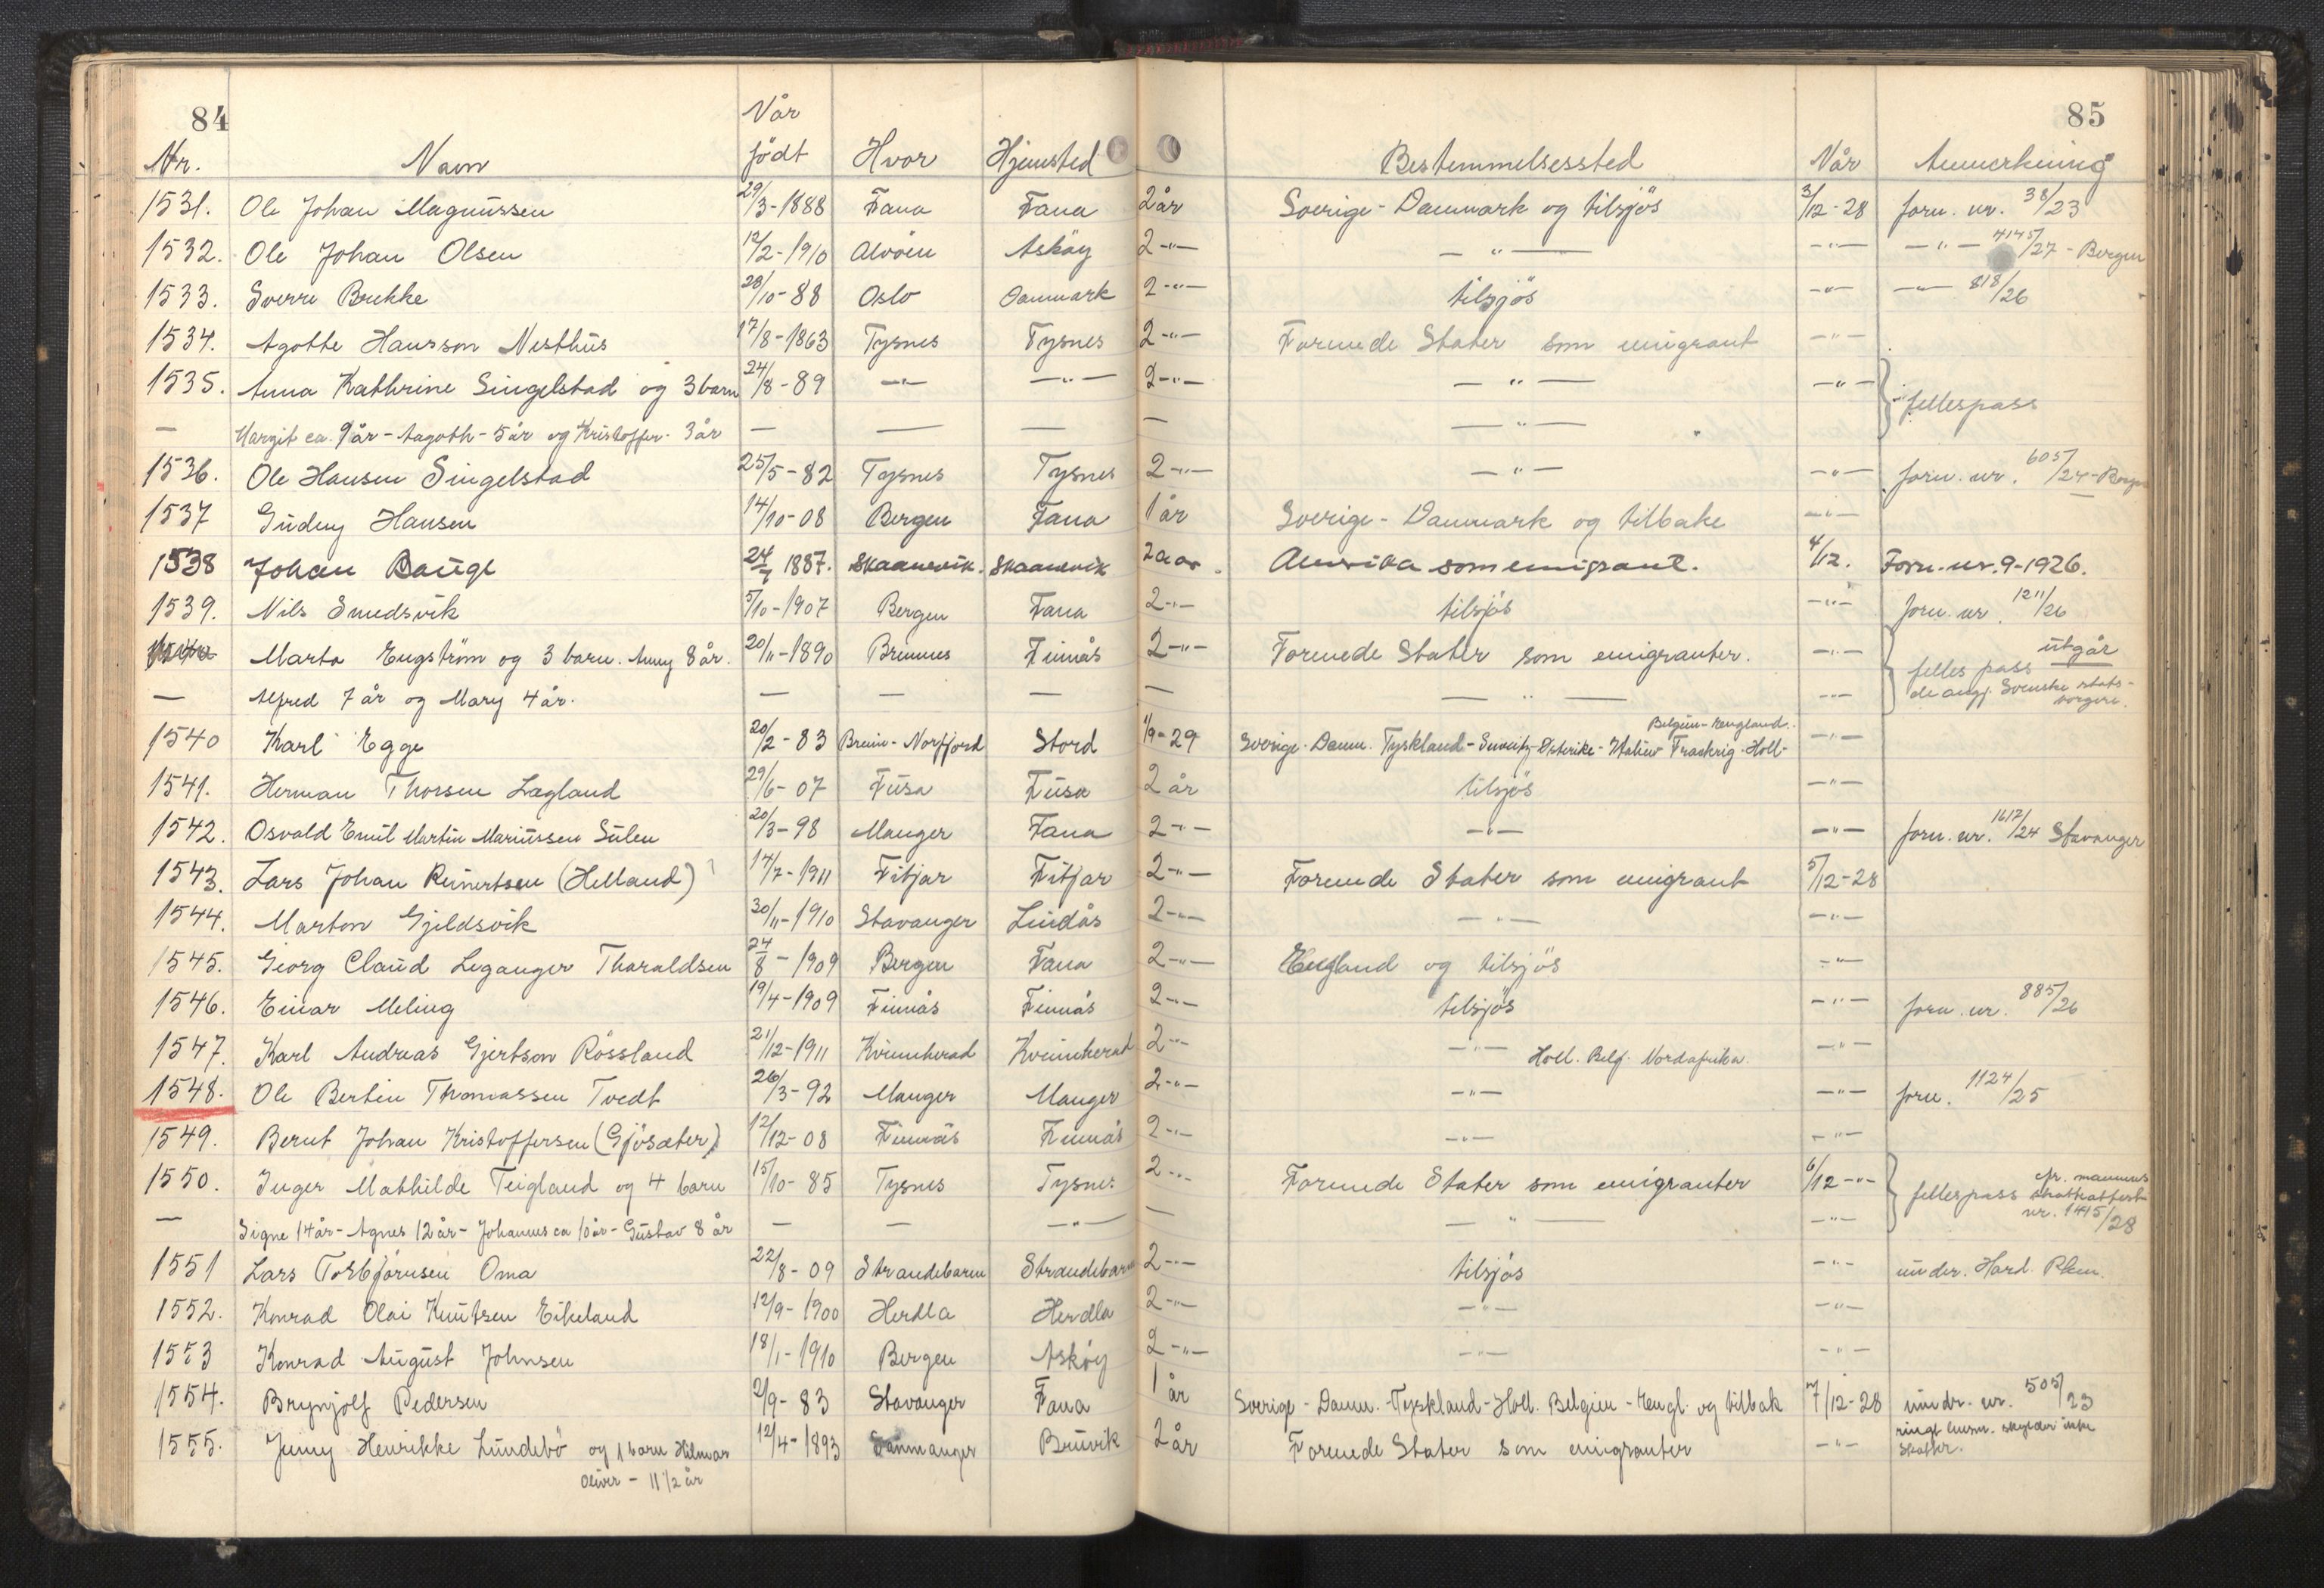 84 85
Når
Nr. Navn født Hvor Hjemsted Bestemmelsessted Når Anmerkning
1531. Ole Johan Magnussen 29/3-1888 Fana Fana 2 år Sverige - Danmark og tilsjös 3/12-28 forn. nr. 38/23
1532. Ole Johan Olsen 12/2-1910 Alvöen Asköy 2 -"- — " — -"- — " — 4145/27 - Bergen
1533. Sverre Brekke 28/10-88 Oslo Danmark 2 -"- tilsjös -"- -"- 818/26
1534. Agothe Hansson Nesthus 17/8-1863 Tysnes Tysnes 2 -"- Forenede Stater som emigrant -"-
1535. Anna Kathrine Singelstad og 3 barn 24/8-89 -"- -"- 2 -"- — " — -"- fellespass
— Margit ca. 9 år - Aagoth - 5 år og Kristoffer - 3 år — — — — — " —
1536. Ole Hansen Singelstad 25/5-82 Tysnes Tysnes 2 -"- — " — -"- forn. nr. 605/24 - Bergen
1537 Gudny Hansen 14/10-08 Bergen Fana 1 år Sverige - Danmark og tilbake -"-
1538 Johan Bauge 24/7 1887. Skaanevik. Skaanevik 2 aar. Amerika som emigrant. 4/12. Forn. nr. 9-1926.
1539. Nils Smedsvik 5/10-1907 Bergen Fana 2 -"- tilsjös -"- forn. nr. 1211/26
Marta Engström og 3 barn. Anny 8 år. 20/11-1890 Bremnes Finnås 2 -"- Forenede Stater som emigranter. -"- felles pass utgår
— Alfred 7 år og Mary 4 år. — — — — — " — -"- de angj. Svenske stats-
borgere.
Belgien - England.
1540 Karl Egge 20/2-83 Breim - Nordfjord Stord 1/9-29 Sverige - Danm. Tyskland - Sveits - Østerike - Italien Frankrig - Holl- -"-
1541. Herman Thorsen Lagland 29/6-07 Fusa Fusa 2 år tilsjös -"-
1542. Osvald Emil Martin Mariussen Sulen 20/3-98 Manger Fana 2 -"- -"- -"- forn. nr. 1617/24 Stavanger
1543. Lars Johan Reinertsen (Helland) 14/7-1911 Fitjar Fitjar 2 -"- Forenede Stater som emigrant 5/12-28
1544. Marton Gjeldsvik 30/11-1910 Stavanger Lindås 2 -"- — " — -"-
1545. Georg Claud Leganger Tharaldsen 24/8-1909 Bergen Fana 2 -"- England og tilsjös -"-
1546. Einar Meling 19/4-1909 Finnås Finnås 2 -"- tilsjös -"- forn. nr. 885/26
1547. Karl Andreas Gjertson Rössland 21/12-1911 Kvinnherad Kvinnherad 2 -"- -"- Holl. Belg. Nordafrika. -"-
1548. Ole Bertin Thomassen Tvedt 26/3-92 Manger Manger 2 -"- -"- -"- forn. 1124/25
1549. Bernt Johan Kristoffersen (Gjösæter) 12/12-08 Finnås Finnås 2 -"- -"- -"-
1550. Inger Mathilde Teigland og 4 barn 15/10-85 Tysnes Tysnes 2 -"- Forenede Stater som emigranter 6/12 -"- fellespass cfr. mannens skatteattest
— Signe 14 år - Agnes 12 år - Johannes ca 10 år - Gustav 8 år — — -"- — — " — -"- nr. 1415/28
1551 Lars Torbjörnsen Oma 22/8-09 Strandebarm Strandebarm 2 -"- tilsjös -"- under. Hard. Pkm.
1552. Konrad Olai Knutsen Eikeland 12/9-1900 Herdla Herdla 2 -"- -"- -"-
1553 Konrad August Johnsen 18/1-1910 Bergen Asköy 2 -"- -"- -"-
1554. Brynjolf Pedersen 2/9-83 Stavanger Fana 1 år Sverige - Danm. - Tyskland - Holl. Belgien - Engl. og tilbak 7/12-28 undr. nr. 505/23
1555. Jenny Henrikke Lundebö og 1 barn Hilmar 12/4-1893 Samnanger Bruvik 2 år Forenede Stater som emigranter -"- skylder ikke
Oliver - 11 1/2 år skatter.